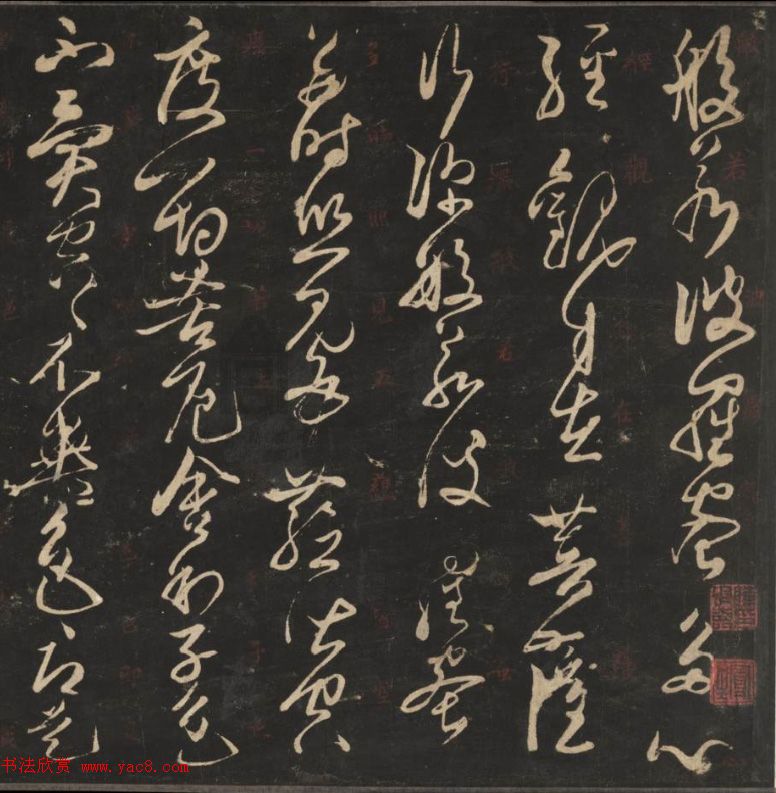 般若波羅蜜多心
經觀自在菩薩
行深般若波羅蜜
多時照見五蘊皆空
度一切苦厄舍利子色
不異空空不異色色即是
书法欣赏 www.yac8.com